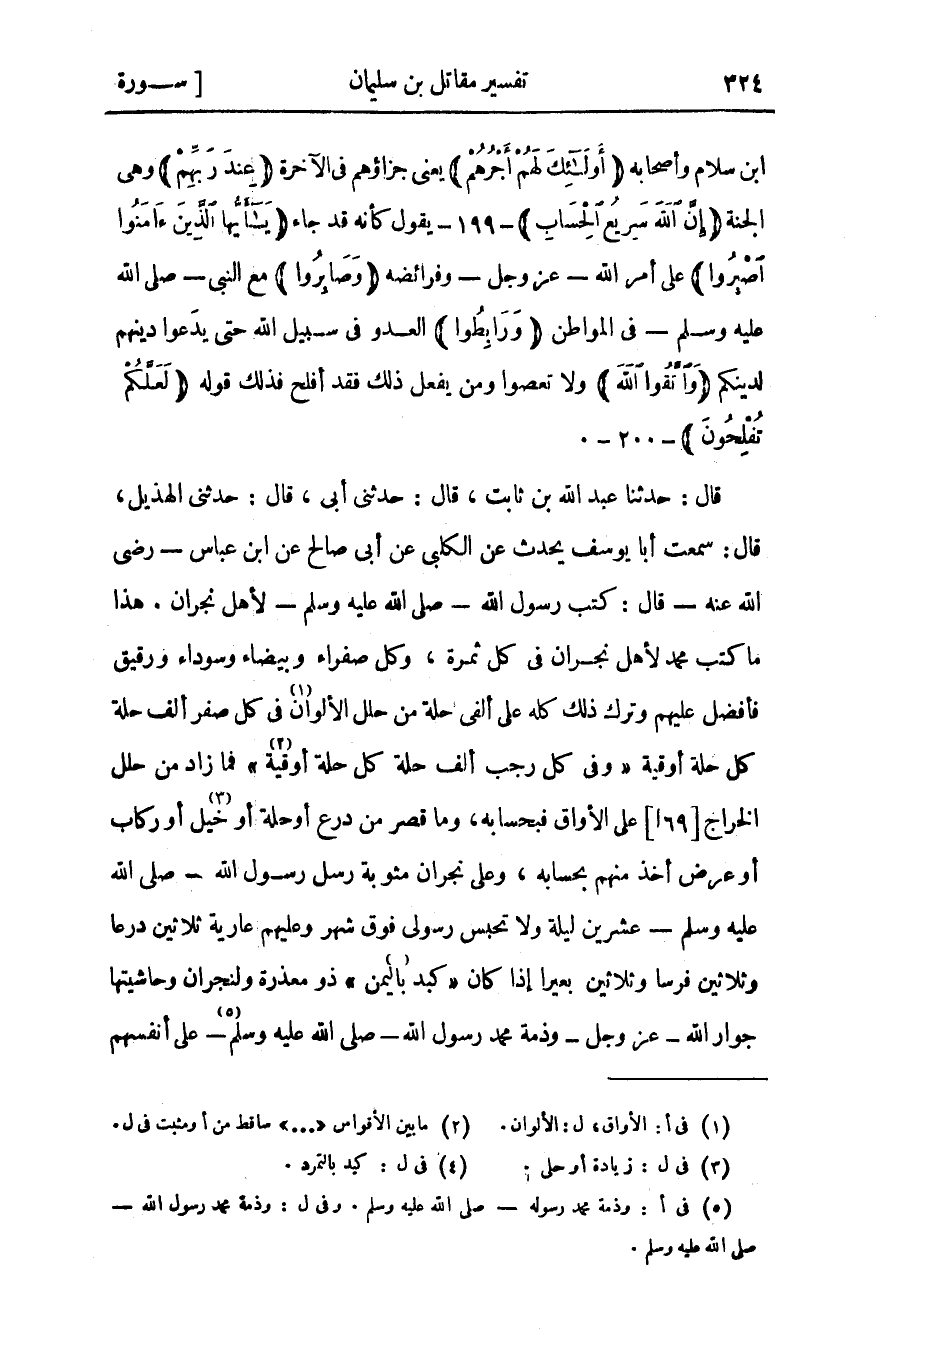 ٣٢٤ تفسير مقاتل بن سليمان [ ســورة
ابن سلام وأصحابه ﴿ أُولَـٰٓئِكَ لَهُمْ أَجْرُهُمْ ﴾ يعنى جزاؤهم فى الآخرة ﴿ عِندَ رَبِّهِمْ ﴾ وهى
الجنة ﴿ إِنَّ ٱللَّهَ سَرِيعُ ٱلْحِسَابِ ﴾ – ١٩٩ – يقول كأنه قد جاء ﴿ يَـٰٓأَيُّهَا ٱلَّذِينَ ءَامَنُوا
ٱصْبِرُوا ﴾ على أمر الله – عز وجل – وفرائضه ﴿ وَصَابِرُوا ﴾ مع النبى – صلى الله
عليه وسلم – فى المواطن ﴿ وَرَابِطُوا ﴾ العدو فى سبيل الله حتى يدَعوا دينهم
لدينكم ﴿ وَٱتَّقُوا ٱللَّهَ ﴾ ولا تعصوا ومن يفعل ذلك فقد أفلح فذلك قوله ﴿ لَعَلَّكُمْ
تُفْلِحُونَ ﴾ – ٢٠٠ – .
قال : حدثنا عبد الله بن ثابت ، قال : حدثنى أبى ، قال : حدثنى الهذيل ،
قال : سمعت أبا يوسف يحدث عن الكلبى عن أبى صالح عن ابن عباس – رضى
الله عنه – قال : كتب رسول الله – صلى الله عليه وسلم – لأهل نجران . هذا
ما كتب محمد لأهل نجران فى كل ثمرة ، وكل صفراء وبيضاء وسوداء ورقيق
فأفضل عليهم وترك ذلك كله على ألفى حلة من حلل الألوان (١) فى كل صفر ألف حلة
كل حلة أوقية « وفى كل رجب ألف حلة كل حلة أوقية (٢) » فما زاد من حلل
الخراج [٦٩ا] على الأواق فبحسابه ، وما قصر من درع أو حلة أو (٣) خيل أو ركاب
أو عرض أخذ منهم بحسابه ، وعلى نجران مثوبة رسل رسول الله – صلى الله
عليه وسلم – عشرين ليلة ولا تحبس رسولى فوق شهر وعليهم عارية ثلاثين درعا
وثلاثين فرسا وثلاثين بعيرا إذا كان « كيد باليمن » ذو معذرة ولنجران وحاشيتها
جوار الله – عز وجل – وذمة محمد رسول الله – صلى الله عليه وسلم (٥) – على أنفسهم
(١) فى أ : الأواق ، ل : الألوان . (٢) ما بين الأقواس «...» ساقط من أ ومثبت فى ل .
(٣) فى ل : زيادة أو حلى . (٤) فى ل : كيد بالتمرد .
(٥) فى أ : وذمة محمد رسوله – صلى الله عليه وسلم . وفى ل : وذمة محمد رسول الله –
صلى الله عليه وسلم .